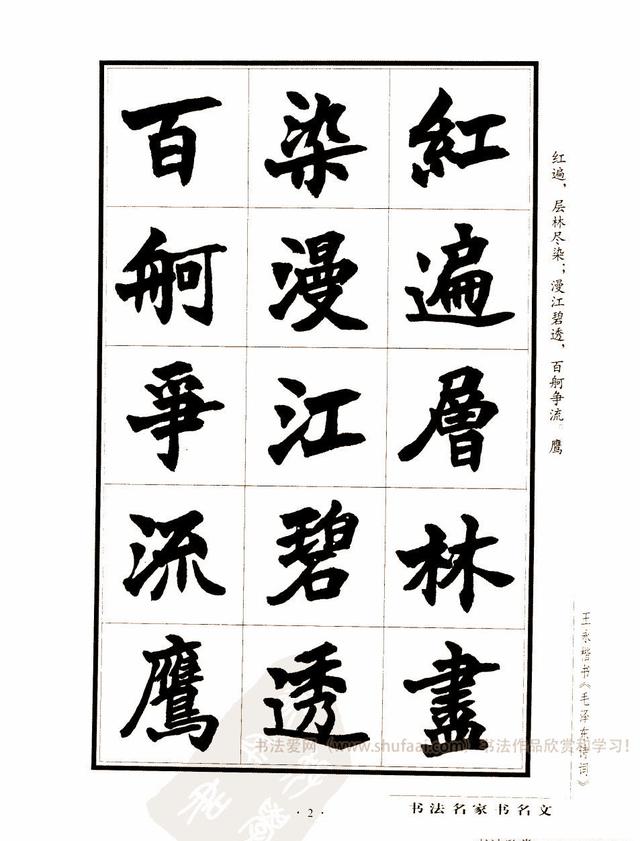 紅遍層林盡
染漫江碧透
百舸爭流鷹
红遍，层林尽染；漫江碧透，百舸争流。鹰
王永楷书《毛泽东诗词》
书法爱网（www.shufaai.com）书法作品欣赏和学习！
·2·
书法名家书名文